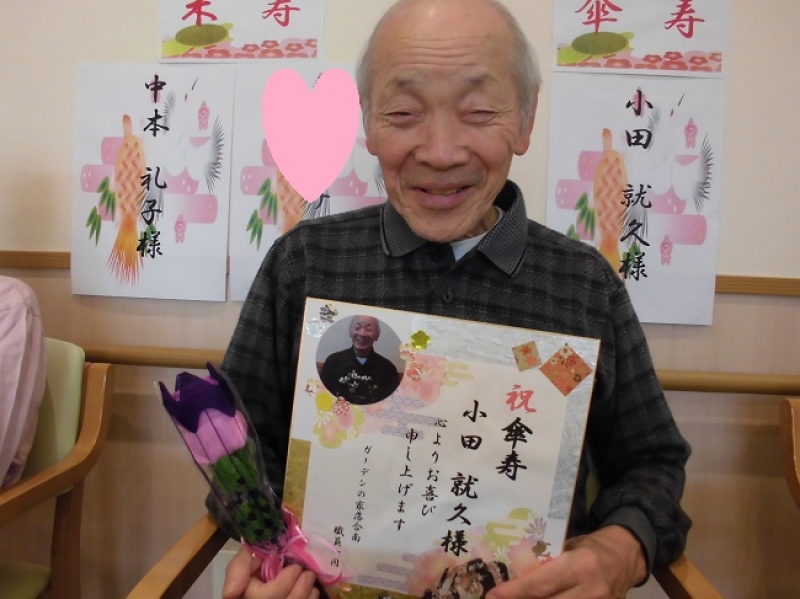 傘寿
米寿
小田 就久様
中本 礼子様
祝傘寿
小田 就久様
心よりお喜び
申し上げます
ガーデンの家落合南
職員一同